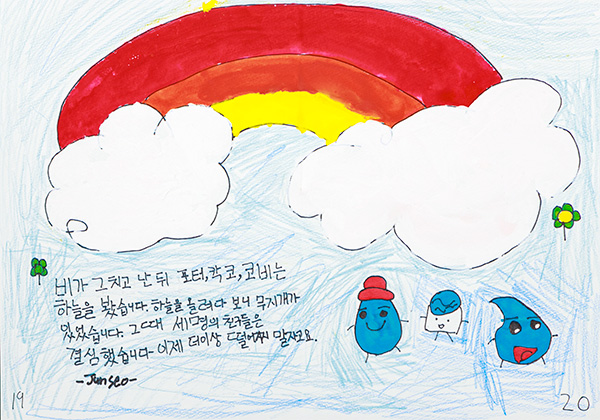 비가 그치고 난 뒤 포터, 칵코, 코비는
하늘을 봤습니다. 하늘을 올려다 보니 무지개가
있었습니다. 그때 세 명의 친구들은
결심했습니다 이제 더이상 말자고요.
-Junseo-
19
20